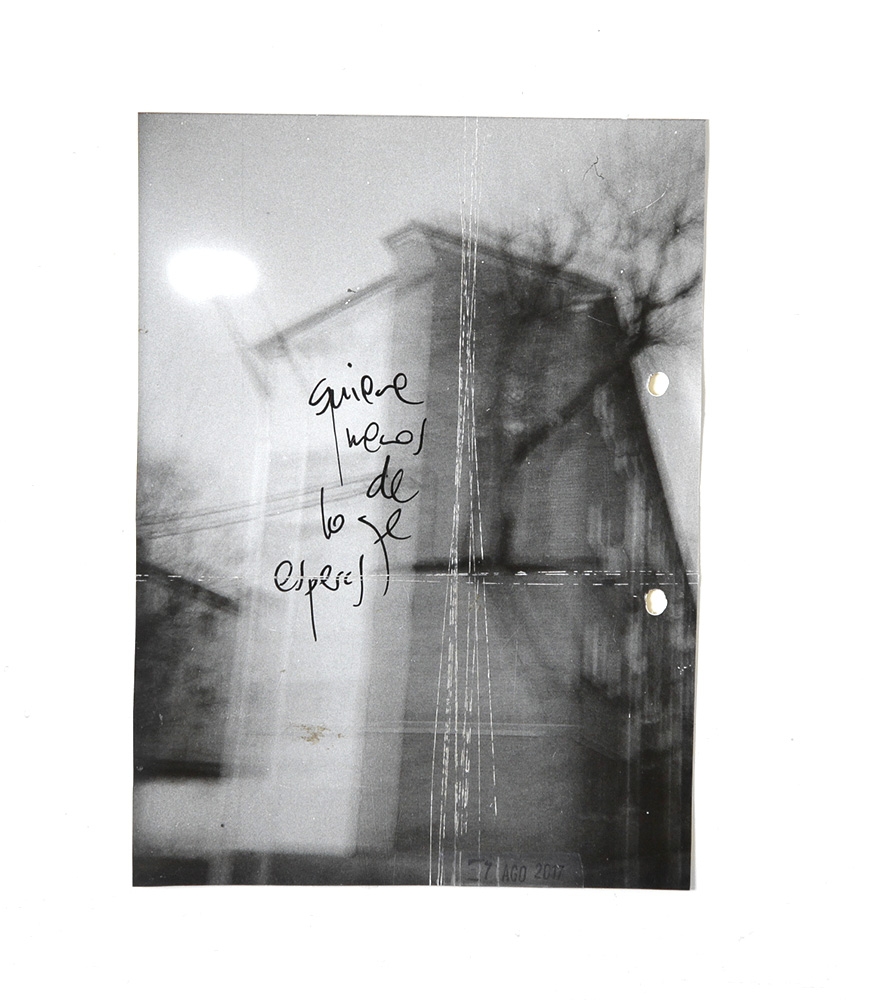 quiere
menos
de
lo qe
esperas
7 AGO 2017